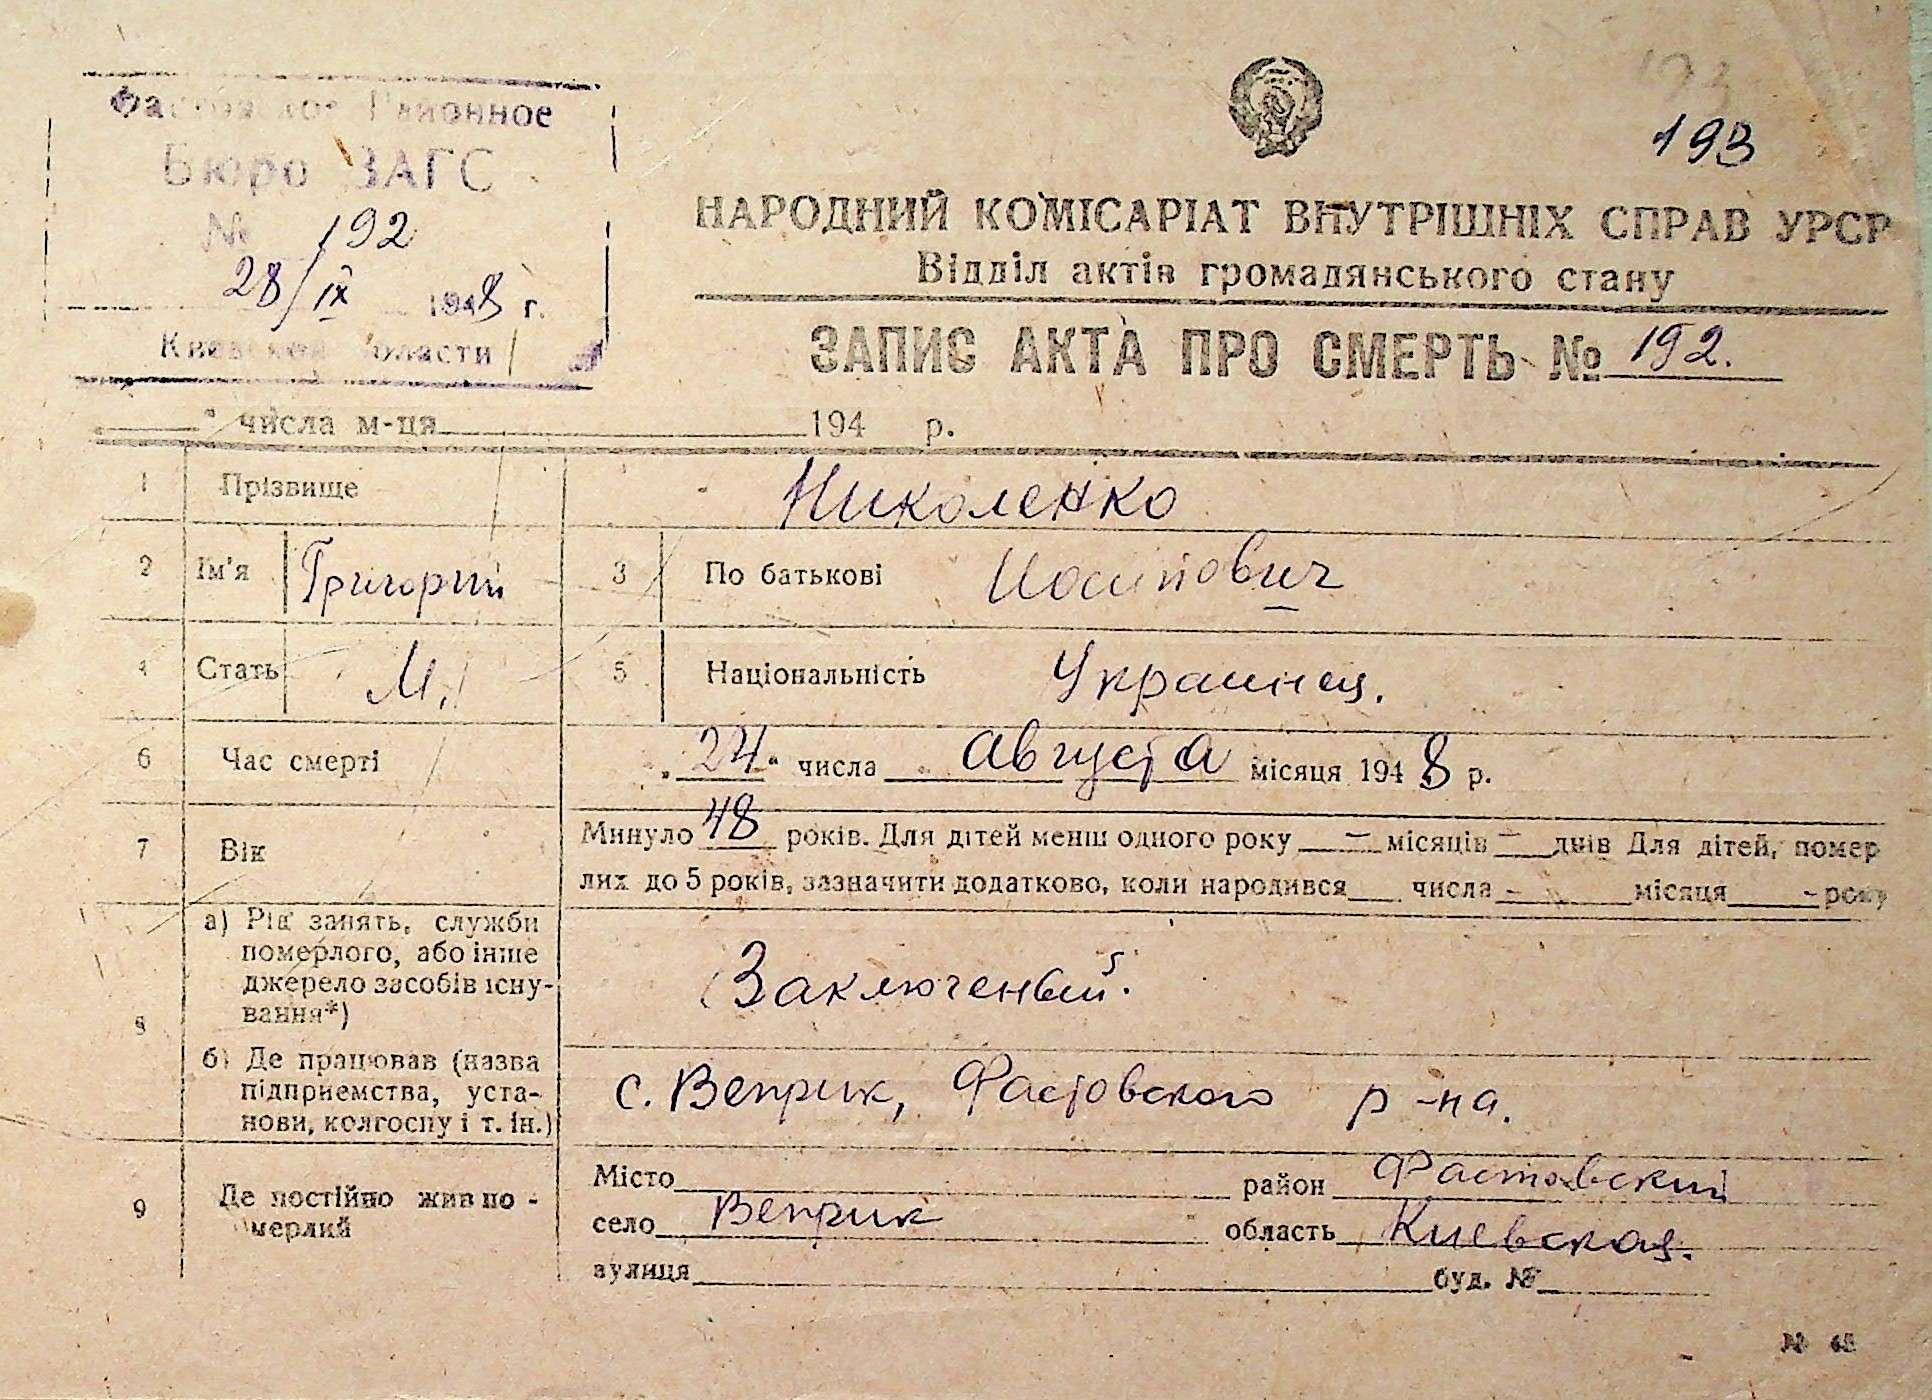 193
Фастовское Районное
Бюро ЗАГС
№ 192
28/IX 1948 г.
Киевской области
НАРОДНИЙ КОМІСАРІАТ ВНУТРІШНІХ СПРАВ УРСР
Відділ актів громадянського стану
ЗАПИС АКТА ПРО СМЕРТЬ № 192.
" числа м-ця 194 р.
1 Прізвище Николенко
2 Ім'я Григорий 3 По батькові Иосипович
4 Стать М. 5 Національність Украинец.
6 Час смерті „24" числа Августа місяця 1948 р.
7 Вік Минуло 48 років. Для дітей менш одного року — місяців — днів Для дітей, помер
лих до 5 років, зазначити додатково, коли народився числа - місяця - року
8 а) Рід занять, служби
померлого, або інше
джерело засобів існу-
вання*)
Заключеный.
б) Де працював (назва
підприємства, уста-
нови, колгоспу і т. ін.)
с. Веприк, Фастовского р-на.
9 Де постійно жив по-
мерлий
Місто район Фастовский
село Веприк область Киевская.
вулиця буд. №